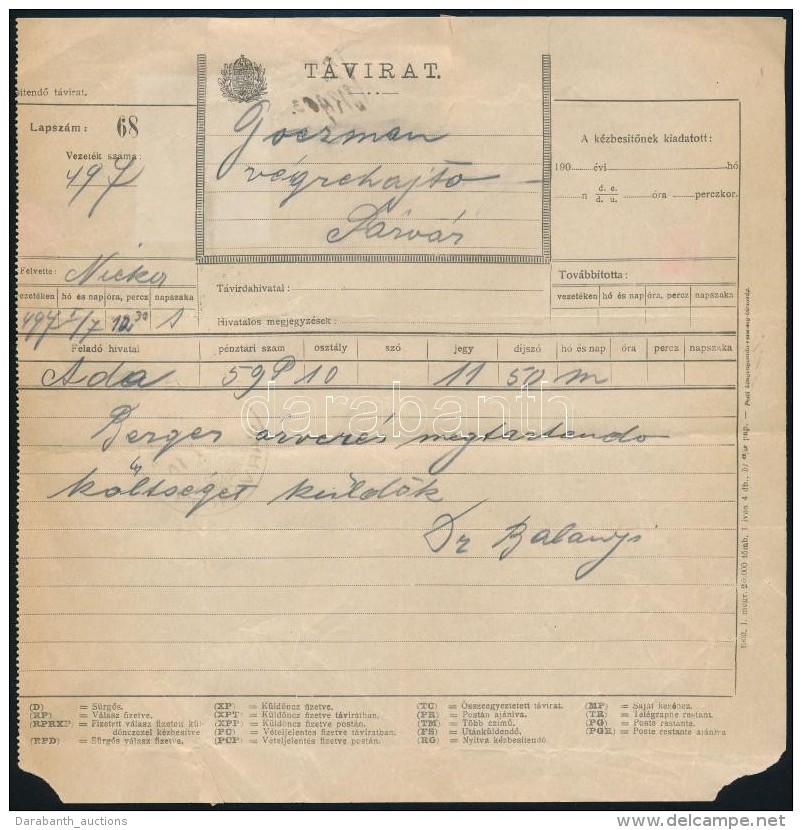 TÁVIRAT.
bitendő távirat.
Lapszám: 68
Vezeték száma:
497
Goczman
végrehajto
Sárvár
A kézbesitőnek kiadatott:
190 évi hó
n d. e. d. u. óra perczkor.
Felvette:
vezetéken hó és nap óra, percz napszaka
497 I/7 10,30
Távirdahivatal:
Hivatalos megjegyzések:
Továbbította:
vezetéken hó és nap óra, percz napszaka
Feladó hivatal pénztári szam osztály szó jegy díjszó hó és nap óra percz napszaka
Ada 59 P 10 11 50 m
Berger árverés megtartando
költséget küldök
Dr Balanyi
darabanth
(D) = Sürgős.
(RP) = Válasz fizetve.
(RPRXP) = Fizetett válasz fizetett kül
dönczczel kézbesítve
(RPD) = Sürgős válasz fizetve.
(XP) = Küldöncz fizetve.
(XPT) = Küldöncz fizetve táviratban.
(XPP) = Küldöncz fizetve postán.
(PC) = Vételjelentés fizetve táviratban.
(PCP) = Vételjelentés fizetve postán.
(TC) = Összeegyeztetett távirat.
(PR) = Postán ajánlva.
(TM) = Több czímű.
(FS) = Utánküldendő.
(RO) = Nyitva kézbesítendő.
(MP) = Saját kezéhez.
(TR) = Télégraphe restant.
(PG) = Poste restante.
(PGR) = Poste restante ajánlva
Darabanth_auctions
delcampe.net